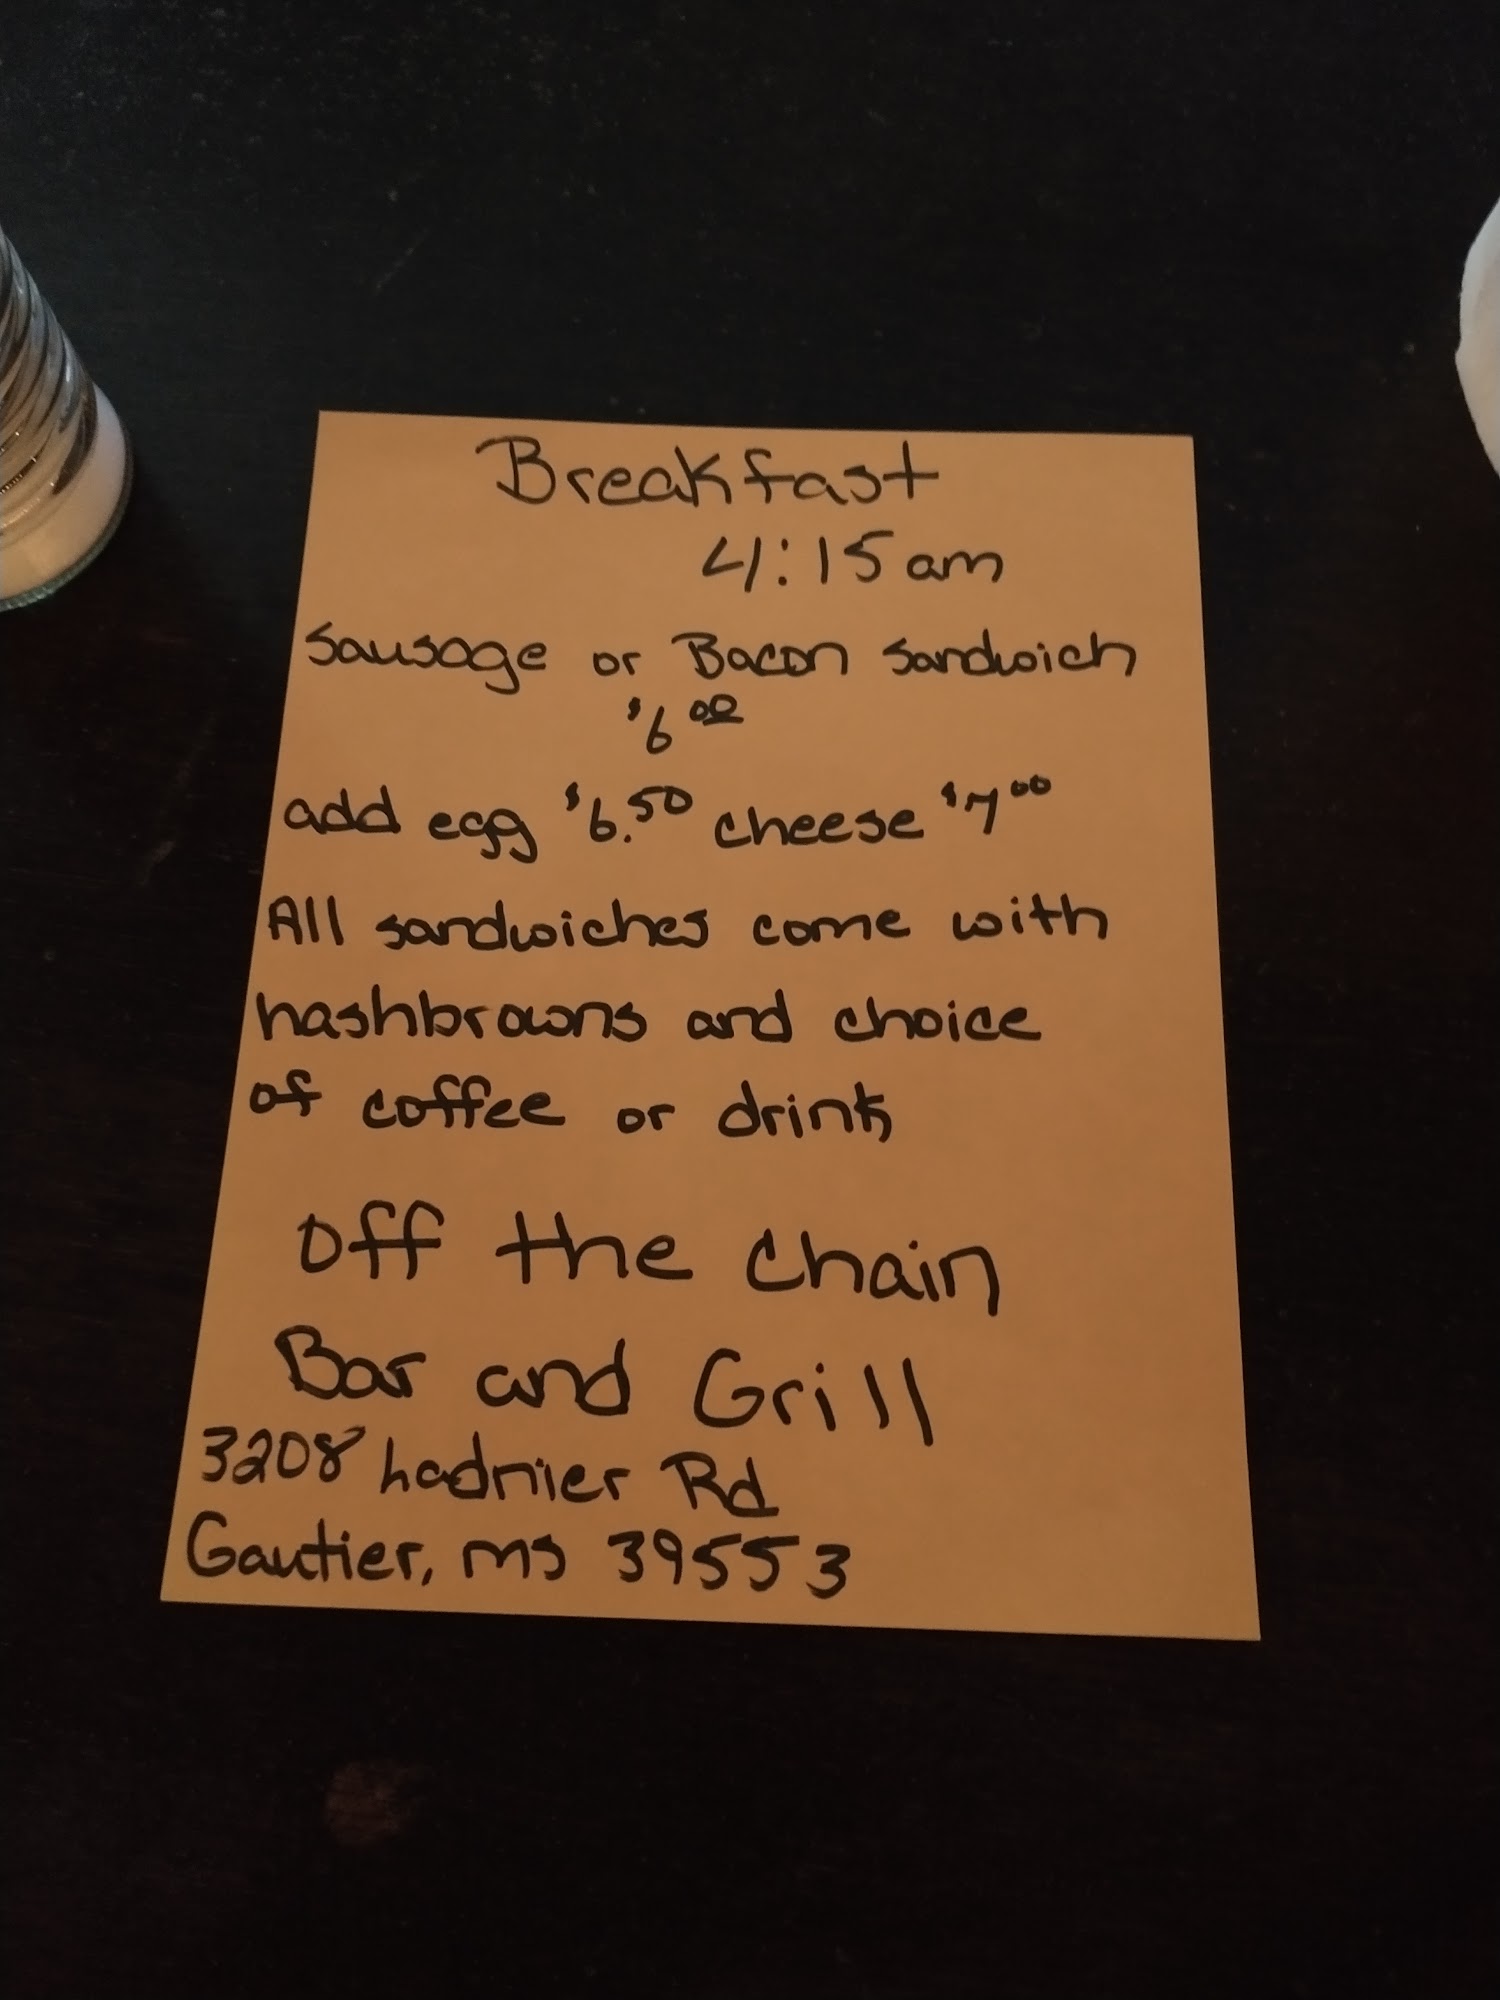 Breakfast
4:15 am
Sausage or Bacon Sandwich
$6 00
add egg $6.50 cheese $7 00
All sandwiches come with
hashbrowns and choice
of coffee or drink
Off the Chain
Bar and Grill
3208 hadnier Rd
Gautier, ms 39553